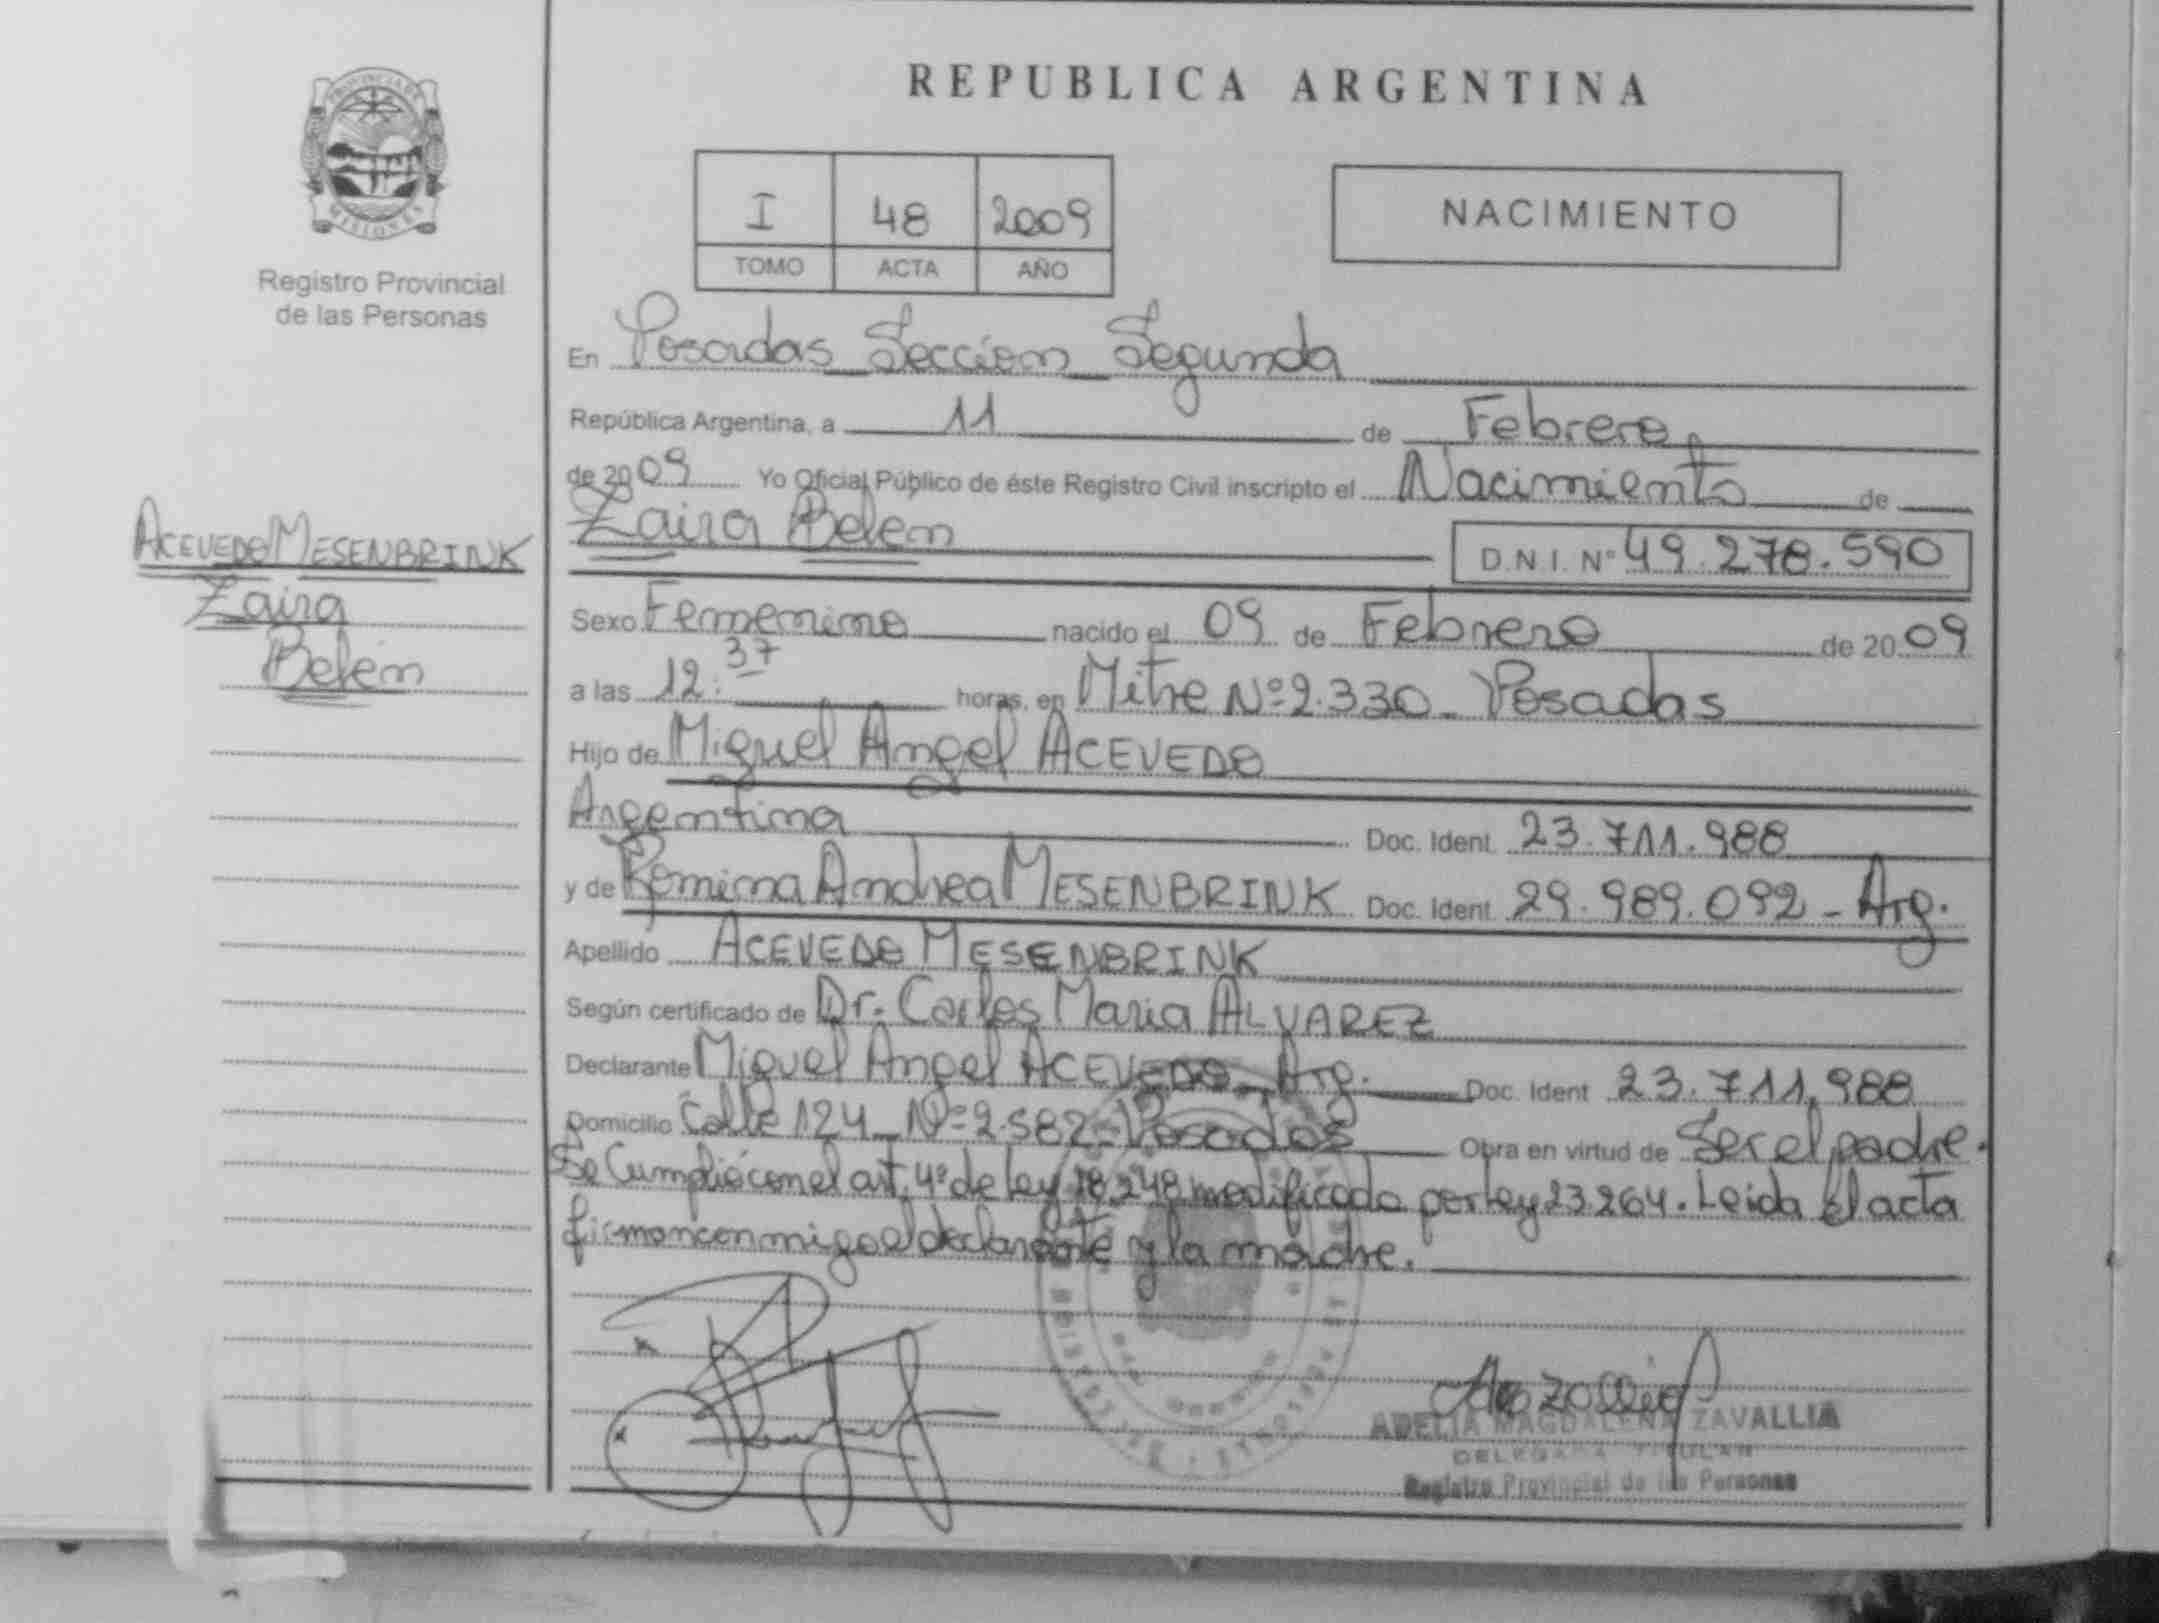 REPUBLICA ARGENTINA
PROVINCIA DE
MISIONES
Registro Provincial
de las Personas
I 48 2009
TOMO ACTA AÑO
NACIMIENTO
En Posadas Sección Segunda
República Argentina, a 11 de Febrero
de 2009 Yo Oficial Público de éste Registro Civil inscripto el Nacimiento de
Zaira Belem
D.N.I. Nº 49.278.590
ACEVEDO MESENBRINK
Zaira
Belém
Sexo Femenino nacido el 09 de Febrero de 2009
a las 12:37 horas, en Mitre Nº 2.330 - Posadas
Hijo de Miguel Angel ACEVEDO
Argentina Doc. Ident. 23.711.988
y de Romina Andrea MESENBRINK Doc. Ident. 29.989.092 - Arg.
Apellido ACEVEDO MESENBRINK
Según certificado de Dr. Carlos Maria ALVAREZ
Declarante Miguel Angel ACEVEDO - Arg. Doc. Ident 23.711.988
Domicilio Calle 124 - Nº 2.582 - Posadas Obra en virtud de Ser el padre.
Se Cumplió con el art. 4º de ley 18.248 modificado por ley 23.264. Leida el acta
firman conmigo el declarante y la madre.
ADELIA MAGDALENA ZAVALLIA
DELEGADA TITULAR
Registro Provincial de las Personas